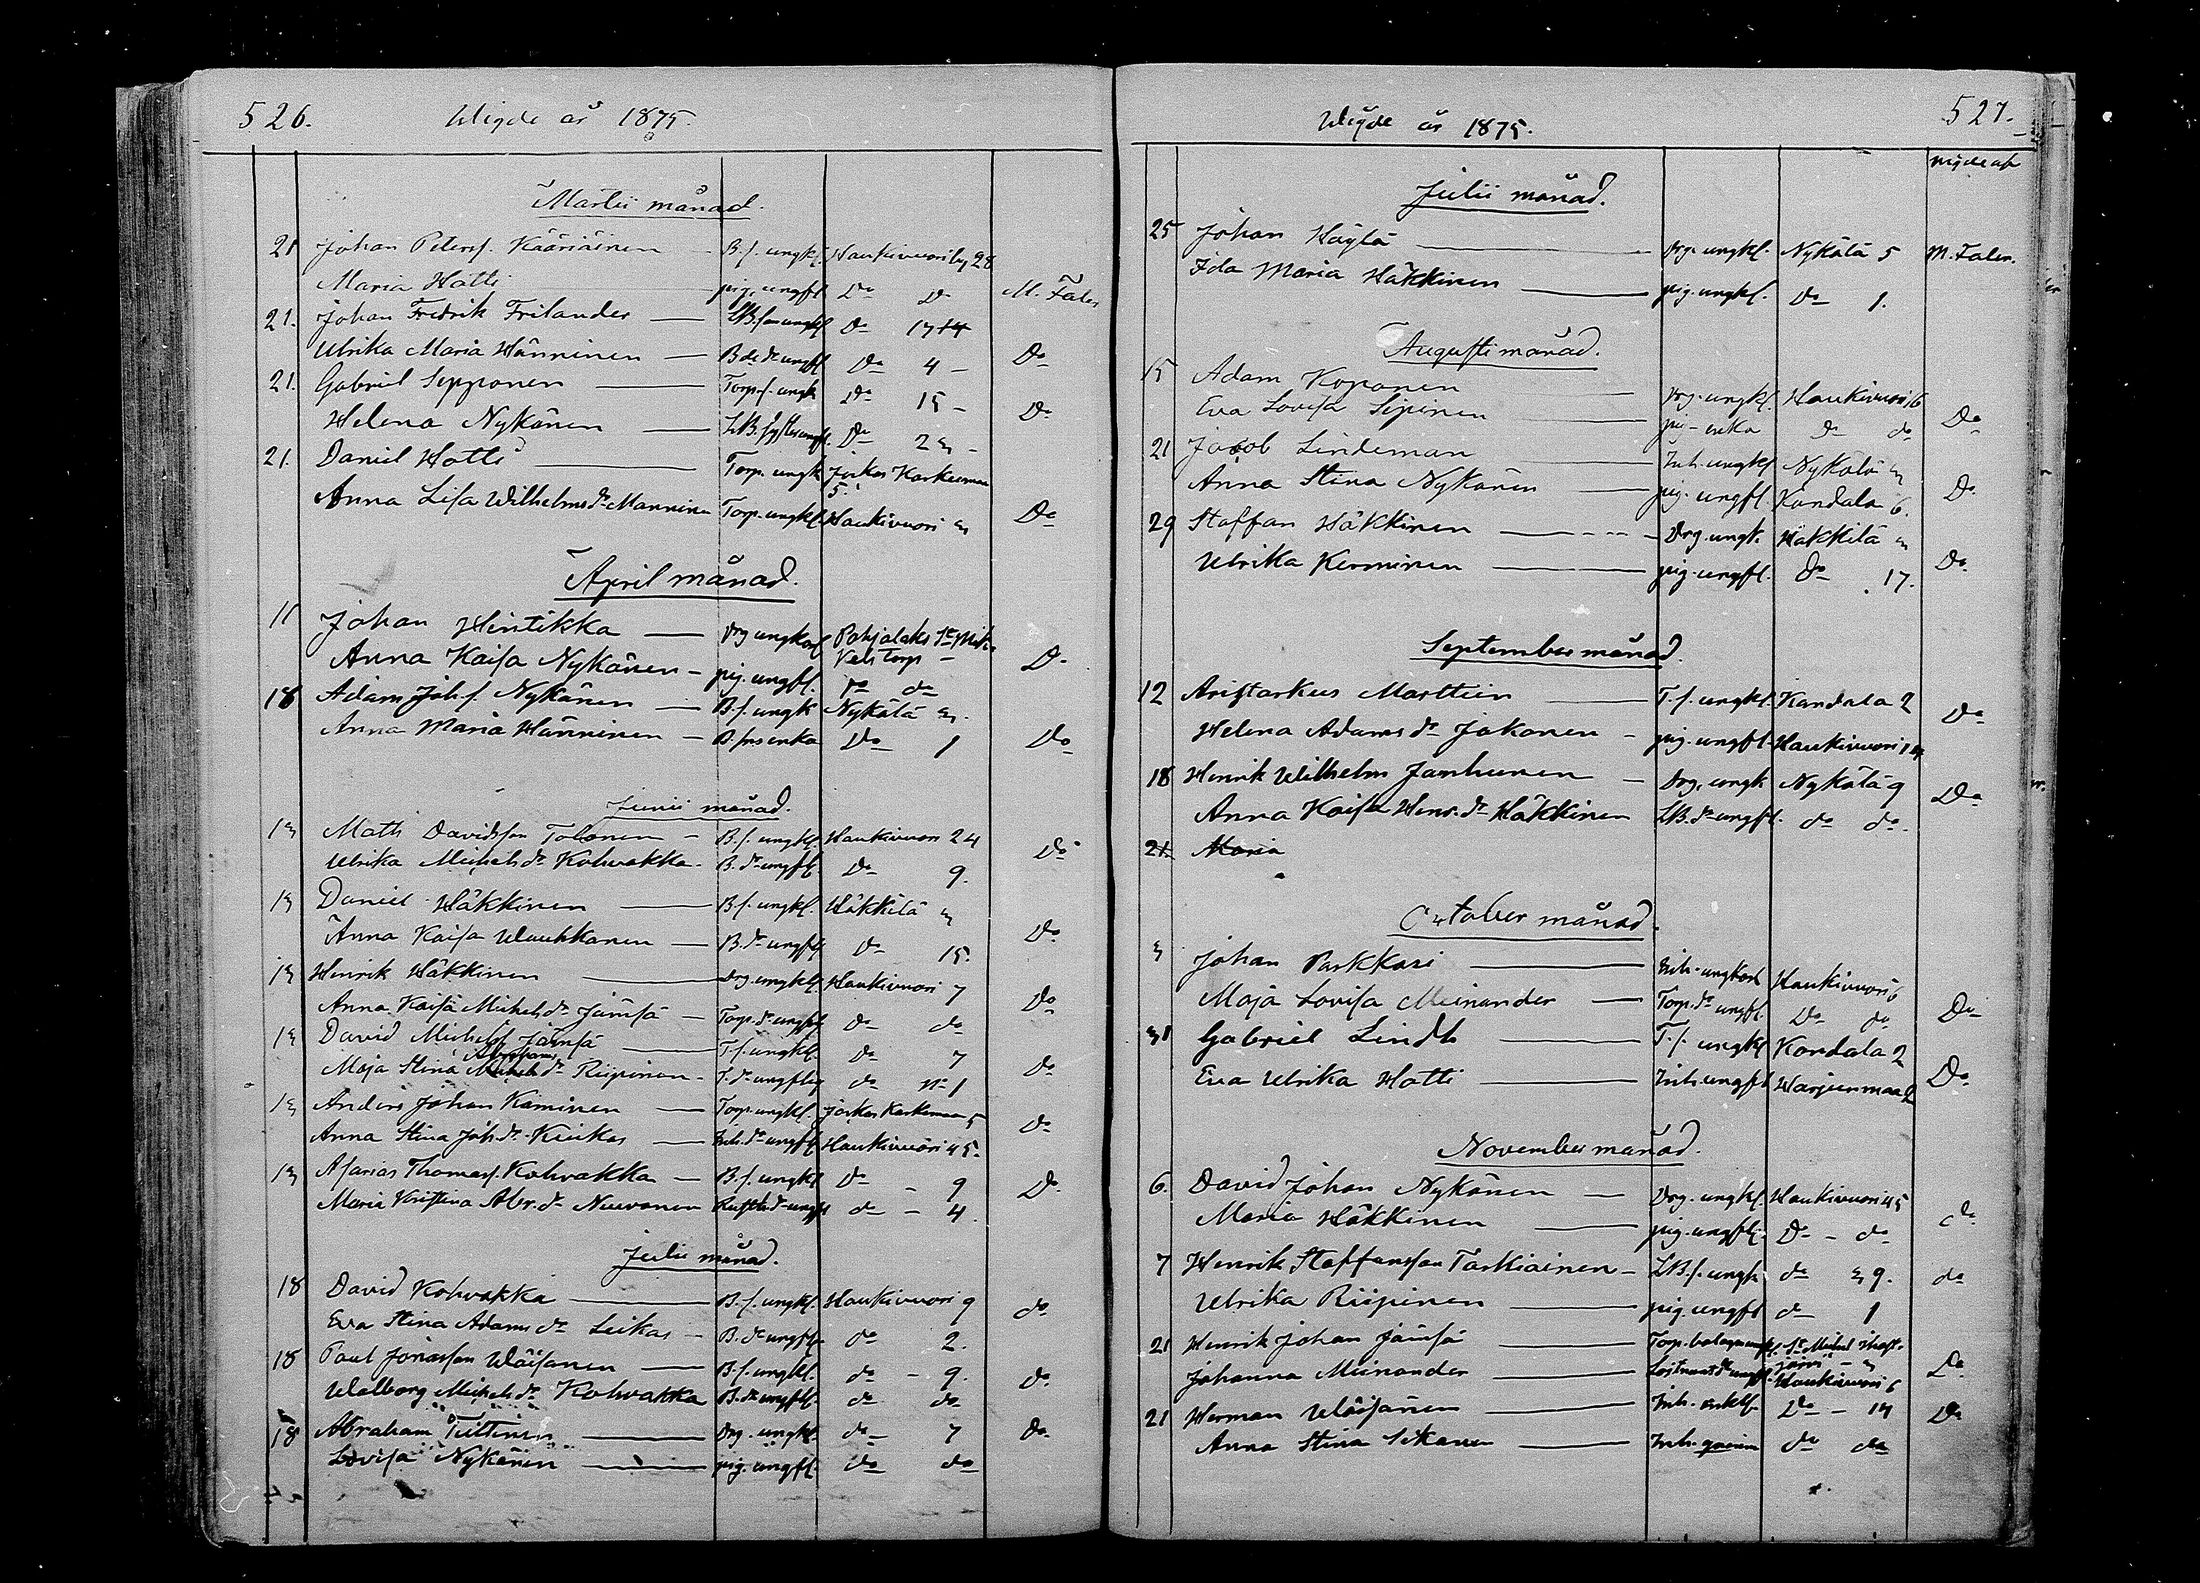 526. Wigde år 1875.
Martii månad.
21 Johan Peterss. Kääriäinen B.s. ungkl. Haukivuori by 28
Maria Hotti pig. ungfl Do Do M. Faler
21. Johan Fredrik Frilander LB. son ungkl Do 17
Ulrika Maria Hänninen B de dr ungfl Do 4 Do
21. Gabriel Sepponen Torp.s. ungk Do 15
Helena Nykänen LB. syster ungfl. Do 23 Do
21. Daniel Hotti Torp. ungk Jorkas Karkeamaa
5.
Anna Lisa Wilhelms dr Manninen Torp. ungkl. Haukivuori 3 Do
April månad.
11 Johan Hintikka drg ungkarl Pohjalaks St Mich
Anna Kaisa Nykänen pig. ungfl. Do do Do
18 Adam Joh.s. Nykänen B.s. ungk Nykälä 3.
Anna Maria Hänninen B. ens enka Do 1 Do
Junii månad.
13 Matts Davidsson Tolonen B.s. ungkl. Haukivuori 24
Ulrika Michels dr Kohvakka B. dr ungfl Do 9. Do
13 Daniel Häkkinen B.s. ungkl. Häkkilä 3
Anna Kaisa Wauhkonen B. dr ungfl Do 15. Do
13 Henrik Häkkinen drg. ungkl Haukivuori 7
Anna Kaisa Michels dr Jämsä Torp. dr ungfl Do do Do
13 David Michelss Jämsä T.s. ungkl. Do 7
Abrahams
Maja Stina Michels dr Riipinen T. dr ungflig do No 1 Do
13 Anders Johan Kaminen Torp. ungkl. Jorkas Karkeamaa 5
Anna Stina Joh. dr Kiukas Inh. dr ungfl Haukivuori 45. Do
13 Asarias Thomass. Kohvakka B.s. ungkl Do 9
Maria Kristina Abr. dr Nuuvonen dr ungfl do 4. Do
Julii månad.
18 David Kohvakka B.s. ungkl. Haukivuori 9
Eva Stina Adams dr Leikas B. dr ungfl do 2. do
18 Paul Jonasson Wäisänen B.s. ungkl. do 9.
Walborg Michels dr Kohvakka B. dr ungfl. do do Do
18 Abraham Tiittinen drg. ungkl. do 7
Lovisa Nykänen pig. ungfl. do do Do
Wigde år 1875. 527.
vigde af
Julii månad.
25 Johan Häylä drg. ungkl. Nykälä 5 M. Faler.
Ida Maria Häkkinen pig. ungkl. Do 1.
Augusti månad.
15 Adam Koponen drg. ungkl. Haukivuori 6
Eva Lovisa Sipinen pig. enka Do do Do
21 Jacob Lindeman Inh. ungkl Nykälä 3
Anna Stina Nykänen pig. ungfl. Kandala 6. Do
29 Staffan Häkkinen Drg. ungk. Häkkilä 3
Ulrika Kerminen pig. ungfl. Do 17. Do
September månad.
12 Aristarkus Marttiin T.s. ungkl. Kandala 2
Helena Adams dr Jokonen pig. ungfl. Haukivuori 14 Do
18 Henrik Wilhelm Jamhunen Drg. ungk Nykälä 9
Anna Kaisa Henr. dr Häkkinen LB. dr ungfl. do do Do
21. Maria
October månad.
3 Johan Parkkari Inh. ungkarl Haukivuori 6
Maja Lovisa Meinander Torp. dr ungfl. Do do Do
31 Gabriel Lindh T.s. ungkl Kandala 2
Eva Ulrika Hotti Inh. ungfl Warjunmaa 2 Do
November månad.
6. David Johan Nykänen Drg. ungkl. Haukivuori 45
Maria Häkkinen pig. ungfl. Do do do
7 Henrik Staffansson Tarkiainen LB.s. ungk do 39. do
Ulrika Riipinen pig. ungfl do 1
21 Henrik Johan Jämsä Torp. St Michel
Johanna Meinander dr ungfl. Haukivuori 6 Do
21 Herman Wäisänen Inh. enkl. Do 14
Anna Stina Sikanen Inh. do do Do